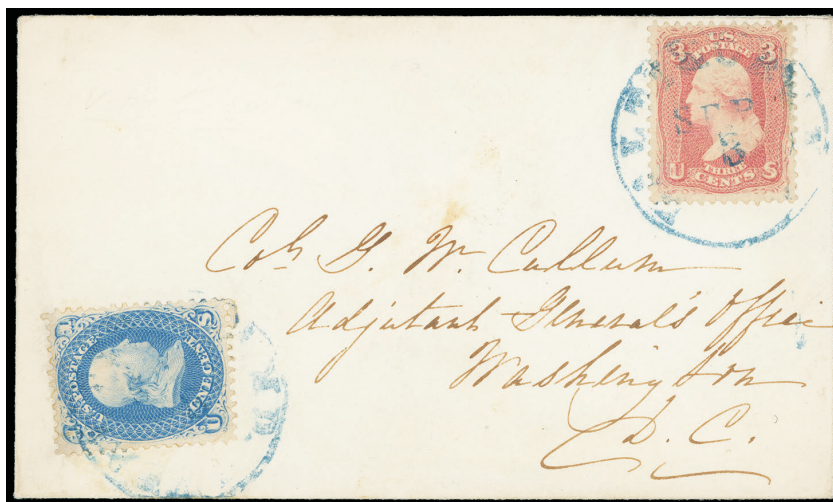 3 U.S. 3
POSTAGE
SEP
U THREE S
CENTS
Col. G. W. Cullum
Adjutant General's Office
Washington
D. C.
U.S. POSTAGE
ONE CENT
U